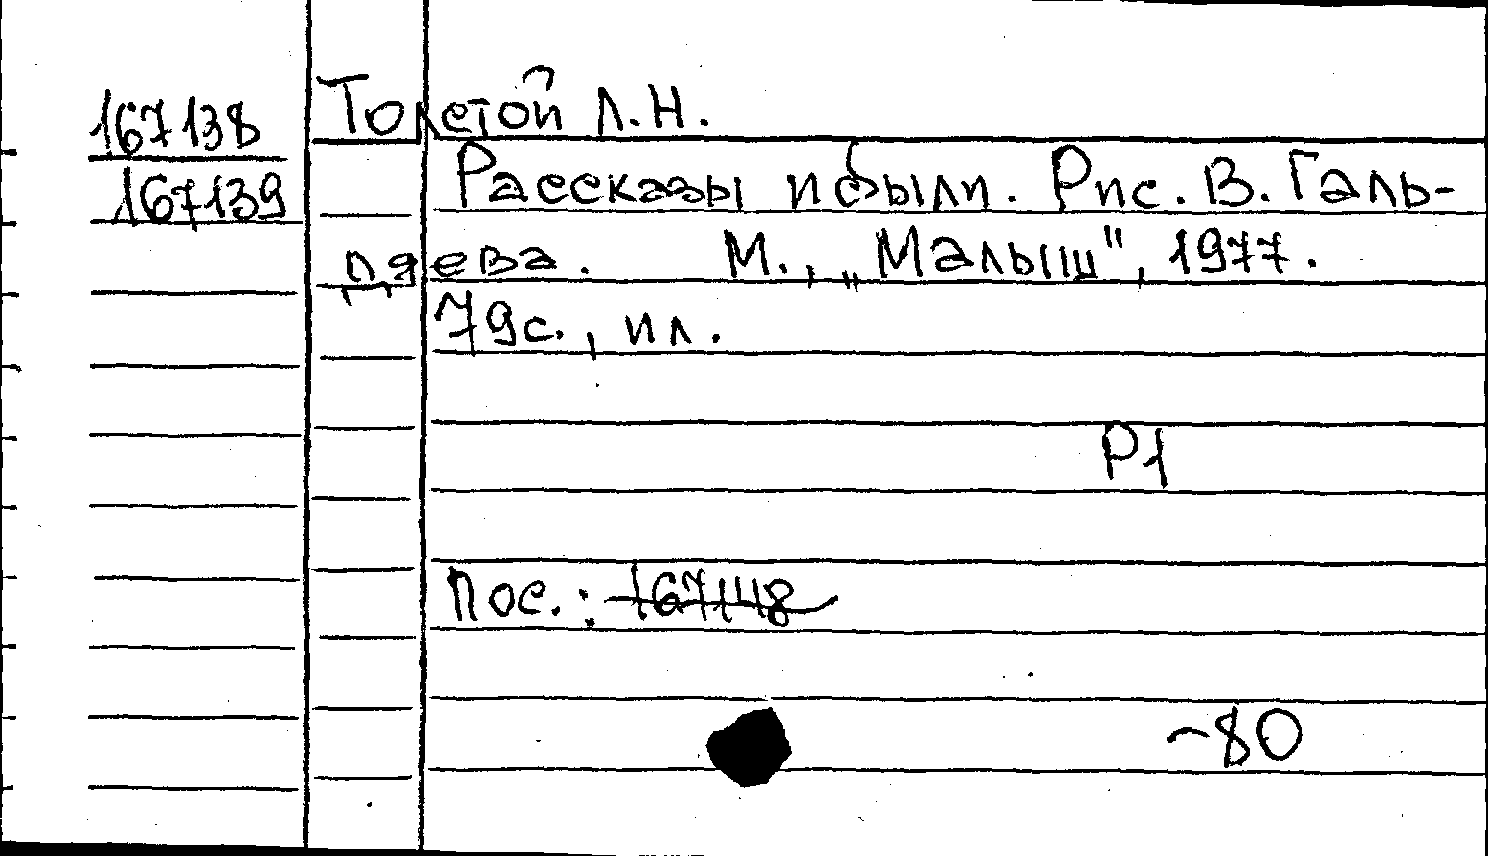 167138
167139
Толстой Л.Н.
Рассказы и были. Рис. В. Галь-
дяева. М., „Малыш", 1977.
79с., ил.
Р1
Пос.: 167148
~80